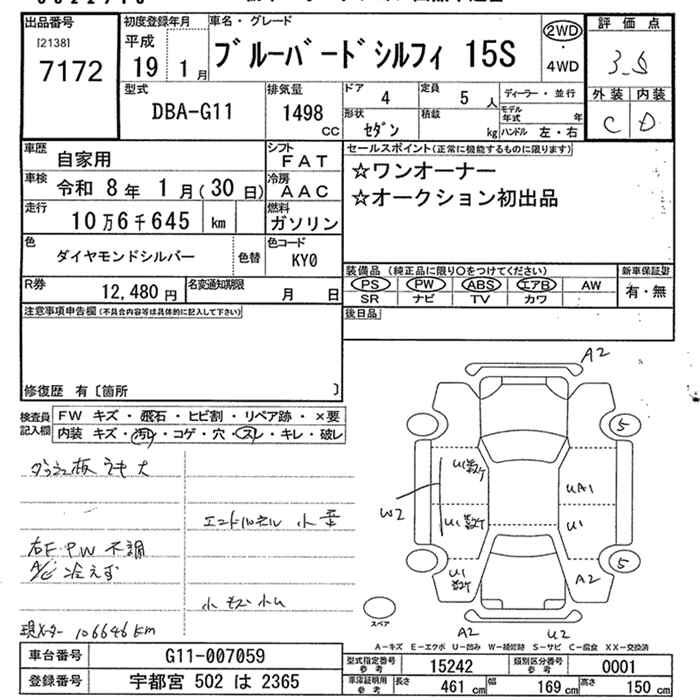 出品番号
[2138]
7172
初度登録年月
平成
19 1月
車名・グレード
ブルーバードシルフィ 15S
2WD
・
4WD
評価点
3.5
外装 内装
C D
型式
DBA-G11
排気量
1498
CC
ドア 4
定員 5人
形状 セダン
積載 kg
ディーラー・並行
モデル年式 年
ハンドル 左・右
車歴
自家用
シフト
FAT
車検
令和 8年 1月(30日)
冷房
AAC
走行
10万6千645 km
燃料
ガソリン
色
ダイヤモンドシルバー
色替
色コード
KY0
R券
12,480円
名変通知期限
月 日
セールスポイント(正常に機能するものに限ります)
☆ワンオーナー
☆オークション初出品
装備品(純正品に限り○をつけてください)
PS PW ABS エアB AW
SR ナビ TV カワ
新車保証書
有・無
後日品
注意事項申告欄(不具合内容等は具体的に記入して下さい)
修復歴 有〔箇所 〕
検査員記入欄
FW キズ・飛石・ヒビ割・リペア跡・×要
内装 キズ・汚れ・コゲ・穴・スレ・キレ・破レ
右F PW 不調
A/C 冷えず
小キズ小凹
現メーター 106646km
A2
5
U1数ケ
UA1
W2
U1数ケ
U1
5
U1数ケ
A2
スペア
A2
U2
A-キズ E-エクボ U-凹み W-補修跡 S-サビ C-腐食 XX-交換済
車台番号 G11-007059
登録番号 宇都宮 502 は 2365
型式指定番号参考 15242
類別区分番号参考 0001
車庫証明用参考 長さ 461cm 幅 169cm 高さ 150cm